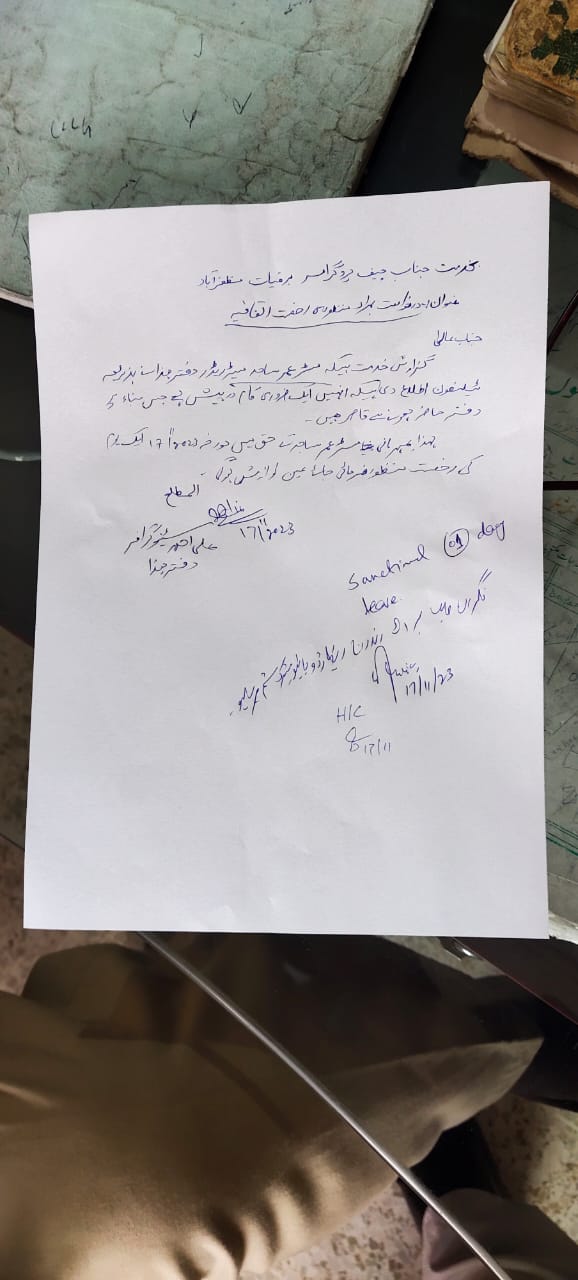 بخدمت جناب چیف پروگرامر برقیات مظفرآباد
عنوان درخواست بمراد منظوری رخصت اتفاقیہ
جناب عالی
گزارش خدمت ہیکہ مسٹر عمر ساجد میٹر ریڈر دفتر ھذا نے بذریعہ
ٹیلیفون اطلاع دی ہیکہ انہیں ایک ضروری کام درپیش ہے جس بناء پر
دفتر حاضر ہونے سے قاصر ہیں۔
لہذا بمہربانی مسٹر عمر ساجد کے حق میں مورخہ 17/11/2023 ایک یوم
کی رخصت منظور فرمائی جانا عین نوازش ہوگی
المطلع
17/11/2023
علی احمد سٹینوگرافر
دفتر ھذا
Sanctioned 01 day
leave
17/11/23
H/C
17/11